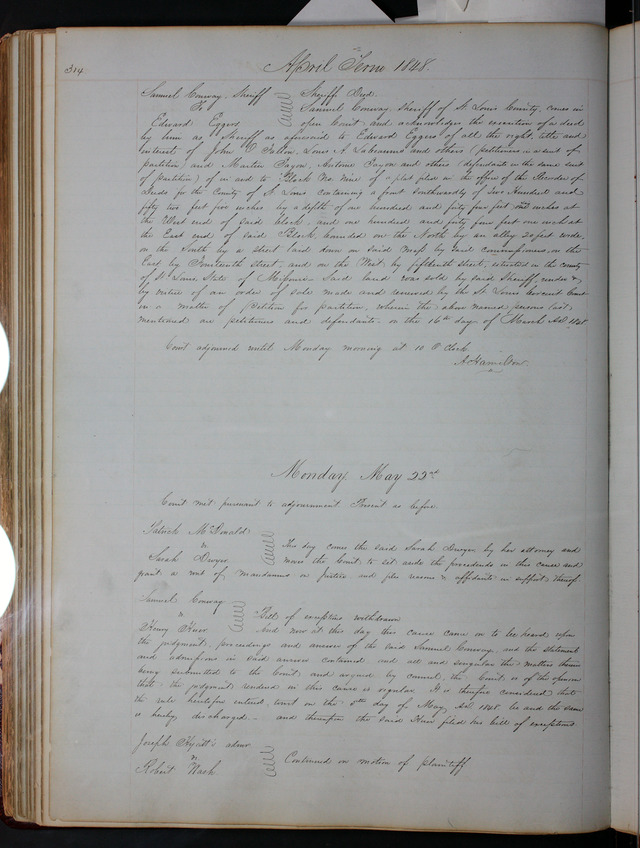 314
April Term 1848.
Samuel Conway, Sheriff Sheriff Deed.
To Samuel Conway Sheriff of St Louis County, comes in
Edward Eggers open Court and acknowledges the execution of a deed
by him as Sheriff as aforesaid to Edward Eggers of all the right title and
interest of John O Fallon, Louis A Labeaume and others (petitioners in a suit of
partition) and Martin and others (defendants in the same suit
of partition) of in and to Block No nine of a plat filed in the office of the Recorder of
Deeds for the County of St Louis containing a front Southwardly of Two Hundred and
fifty two feet five inches by a depth of one hundred and forty five feet inches at
the West end of said block, and one hundred and forty five feet one inch at
the East end of said Block, bounded on the North by an alley 20 feet wide,
on the South by a street laid down on said Map by said commissioners, on the
East by Fourteenth Street, and on the West, by fifteenth street, situated in the county
of St Louis State of Missouri. Said land was sold by said Sheriff, under &
by virtue of an order of sale made and renewed by the St Louis Circuit Court
in a matter of Petition for partition, wherein the above named persons last
mentioned are petitioners and defendants. on the 16th day of March AD. 1848
Court adjourned until Monday morning at 10 O clock
A Hamilton
Monday, May 22nd
Court met pursuant to adjournment Present as before.
Patrick McDonald
vs This day comes the said Sarah Dwyer by her attorney and
Sarah Dwyer moves the Court to set aside the proceeds in this cause and
grant a writ of Mandamus on Justice and files reasons & affidavits in support thereof
Samuel Conway
vs Bill of exception withdrawn
Henry And now at this day this cause came on to be heard upon
the judgment, proceedings and answer of the said Samuel Conway, and the statement
and admissions in said answer contained and all and singular the matters therein
being submitted to the Court and argued by counsel, the Court is of the opinion
that the judgment rendered in this cause is regular. It is therefore considered that
the rule heretofore entered, viz on the day of May, AD. 1848 be and the same
is hereby discharged. and thereupon the said filed his bill of exceptions
Joseph admr
vs Continued on motion of plaintiff
Robert Nash